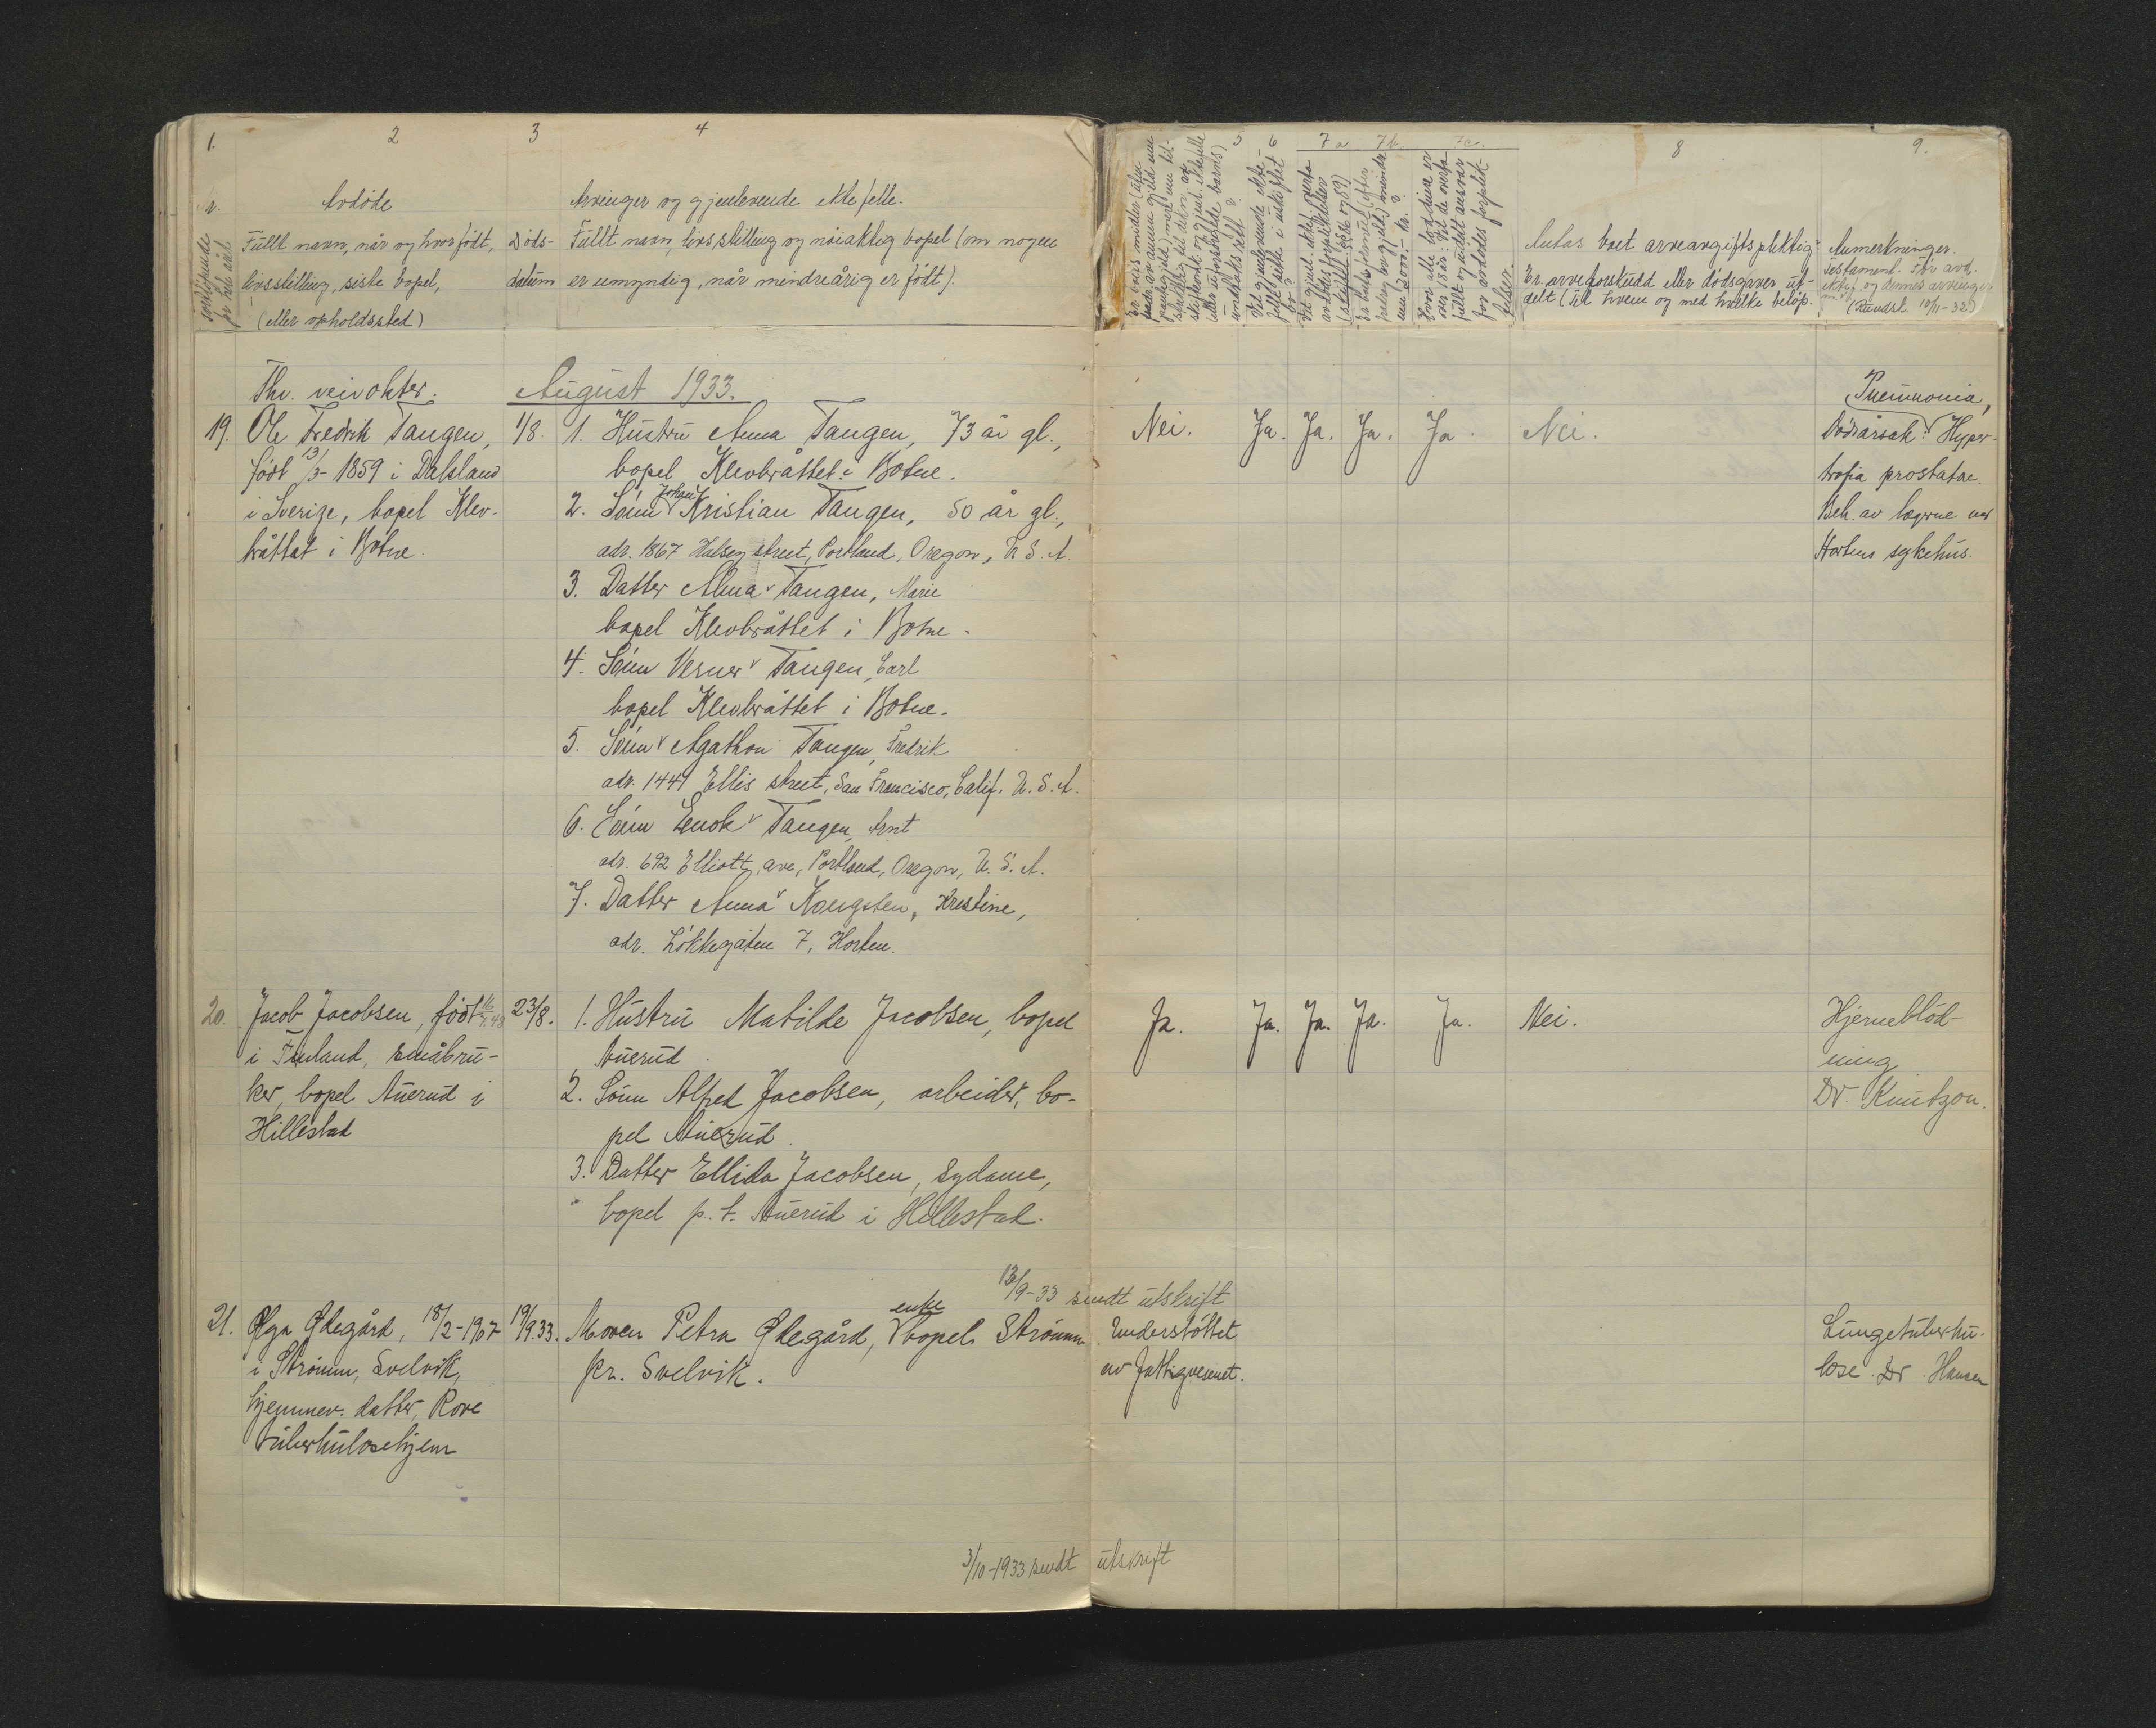 1.
2
3
4
Nr.
fortløpende
for hele året
Avdøde
Fullt navn, når og hvor født,
livsstilling, siste bopel,
(eller opholdssted)
Døds-
datum
Arvinger og gjenlevende ektefelle.
Fullt navn, livsstilling og nøiaktig bopel (om nogen
er umyndig, når mindreårig er født).
August 1933.
Fhv. veivokter.
19. Ole Fredrik Tangen,
født 13/3-1859 i Dalsland
i Sverige, bopel Klev-
bråttet i Botne.
1/8.
1. Hustru Anna Tangen, 73 år gl.,
bopel Klevbråttet i Botne.
2. Sønn Johan Kristian Tangen, 50 år gl.,
adr. 1867 Halsey street, Portland, Oregon, U.S.A.
3. Datter Alma v Tangen, Marie
bopel Klevbråttet i Botne.
4. Sønn Verner v Tangen, Carl
bopel Klevbråttet i Botne.
5. Sønn v Agathon Tangen, Fredrik
adr. 1441 Ellis street, San Francisco, Calif. U.S.A.
6. Sønn Enok v Tangen, Arnt
adr. 692 Elliott, ave, Portland, Oregon, U.S.A.
7. Datter Anna v Kongsten, Kristine,
adr. Løkkegaten 7, Horten.
20. Jacob Jacobsen, født 16/7.48
i Finland, småbru-
ker, bopel Auerud i
Hillestad
23/8.
1. Hustru Matilde Jacobsen, bopel
Auerud
2. Sønn Alfred Jacobsen, arbeider, bo-
pel Auerud.
3. Datter Ellida Jacobsen, sydame,
bopel p.t. Auerud i Hillestad.
13/9-33 sendt utskrift
21. Olga Ødegård, 18/2-1907
i Strømm, Svelvik,
hjemmev. datter, Rove
tuberkulosehjem
19/9.33.
Moren Petra Ødegård, enke v bopel Strømm
pr. Svelvik.
3/10-1933 sendt utskrift
6
7a
7b
7c.
8
9.
Antas boet arveavgiftspliktig?
Er arveforskudd eller dødsgaver ut-
delt (til hvem og med hvilke beløp.
Anmerkninger.
Testament. for avd.
ektef. og dennes arvinger
(Rundsk. 10/11-32)
Nei. Ja. Ja. Ja. Ja. Nei.
Pneumonia,
Dødsårsak: Hyper-
trofia prostatae.
Beh. av lægene ved
Hortens sykehus.
Ja. Ja. Ja. Ja. Ja. Nei.
Hjerneblød-
ning
Dr. Knutzon.
Understøttet
av fattigvesenet.
Lungetuberku-
lose. Dr. Hansen